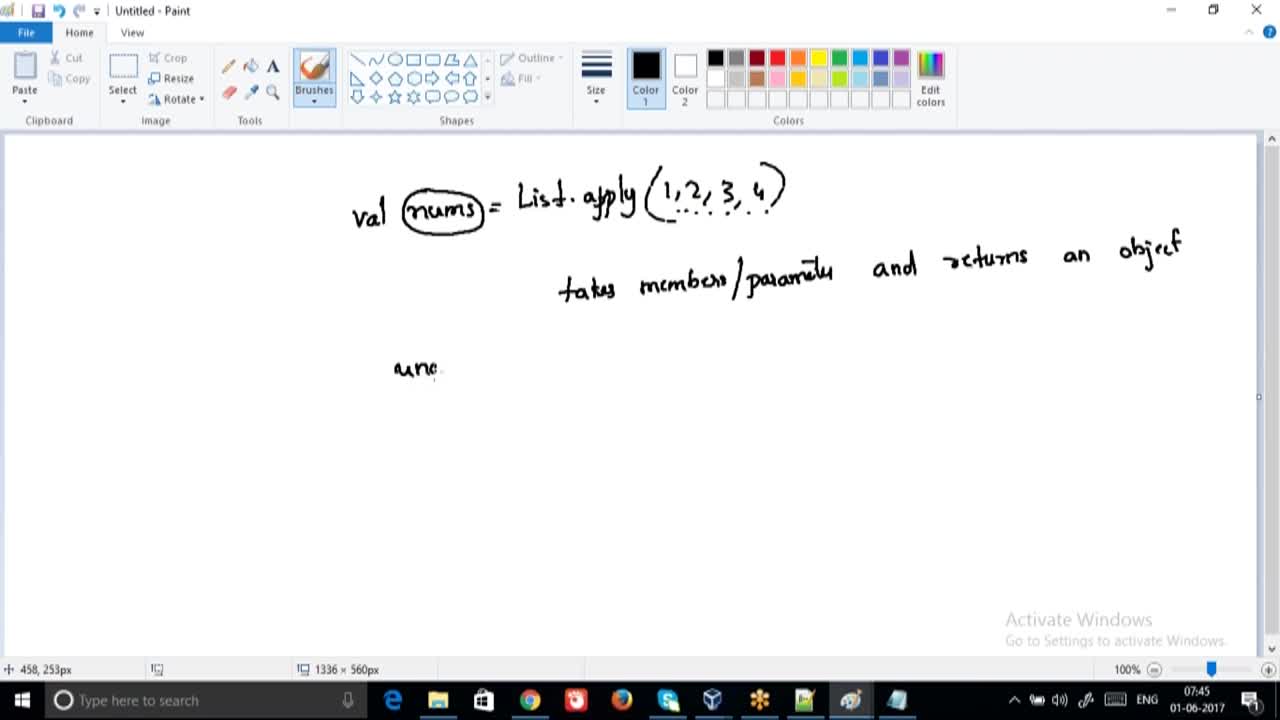 Untitled - Paint
File Home View
Cut
Copy
Paste
Clipboard
Crop
Resize
Rotate
Select
Image
Tools
Brushes
Outline
Fill
Shapes
Size
Color 1
Color 2
Edit colors
Colors
val nums = List.apply(1, 2, 3, 4)
takes members/parameters and returns an object
una
Activate Windows
Go to Settings to activate Windows.
458, 253px
1336 × 560px
100%
Type here to search
ENG
07:45
01-06-2017
1